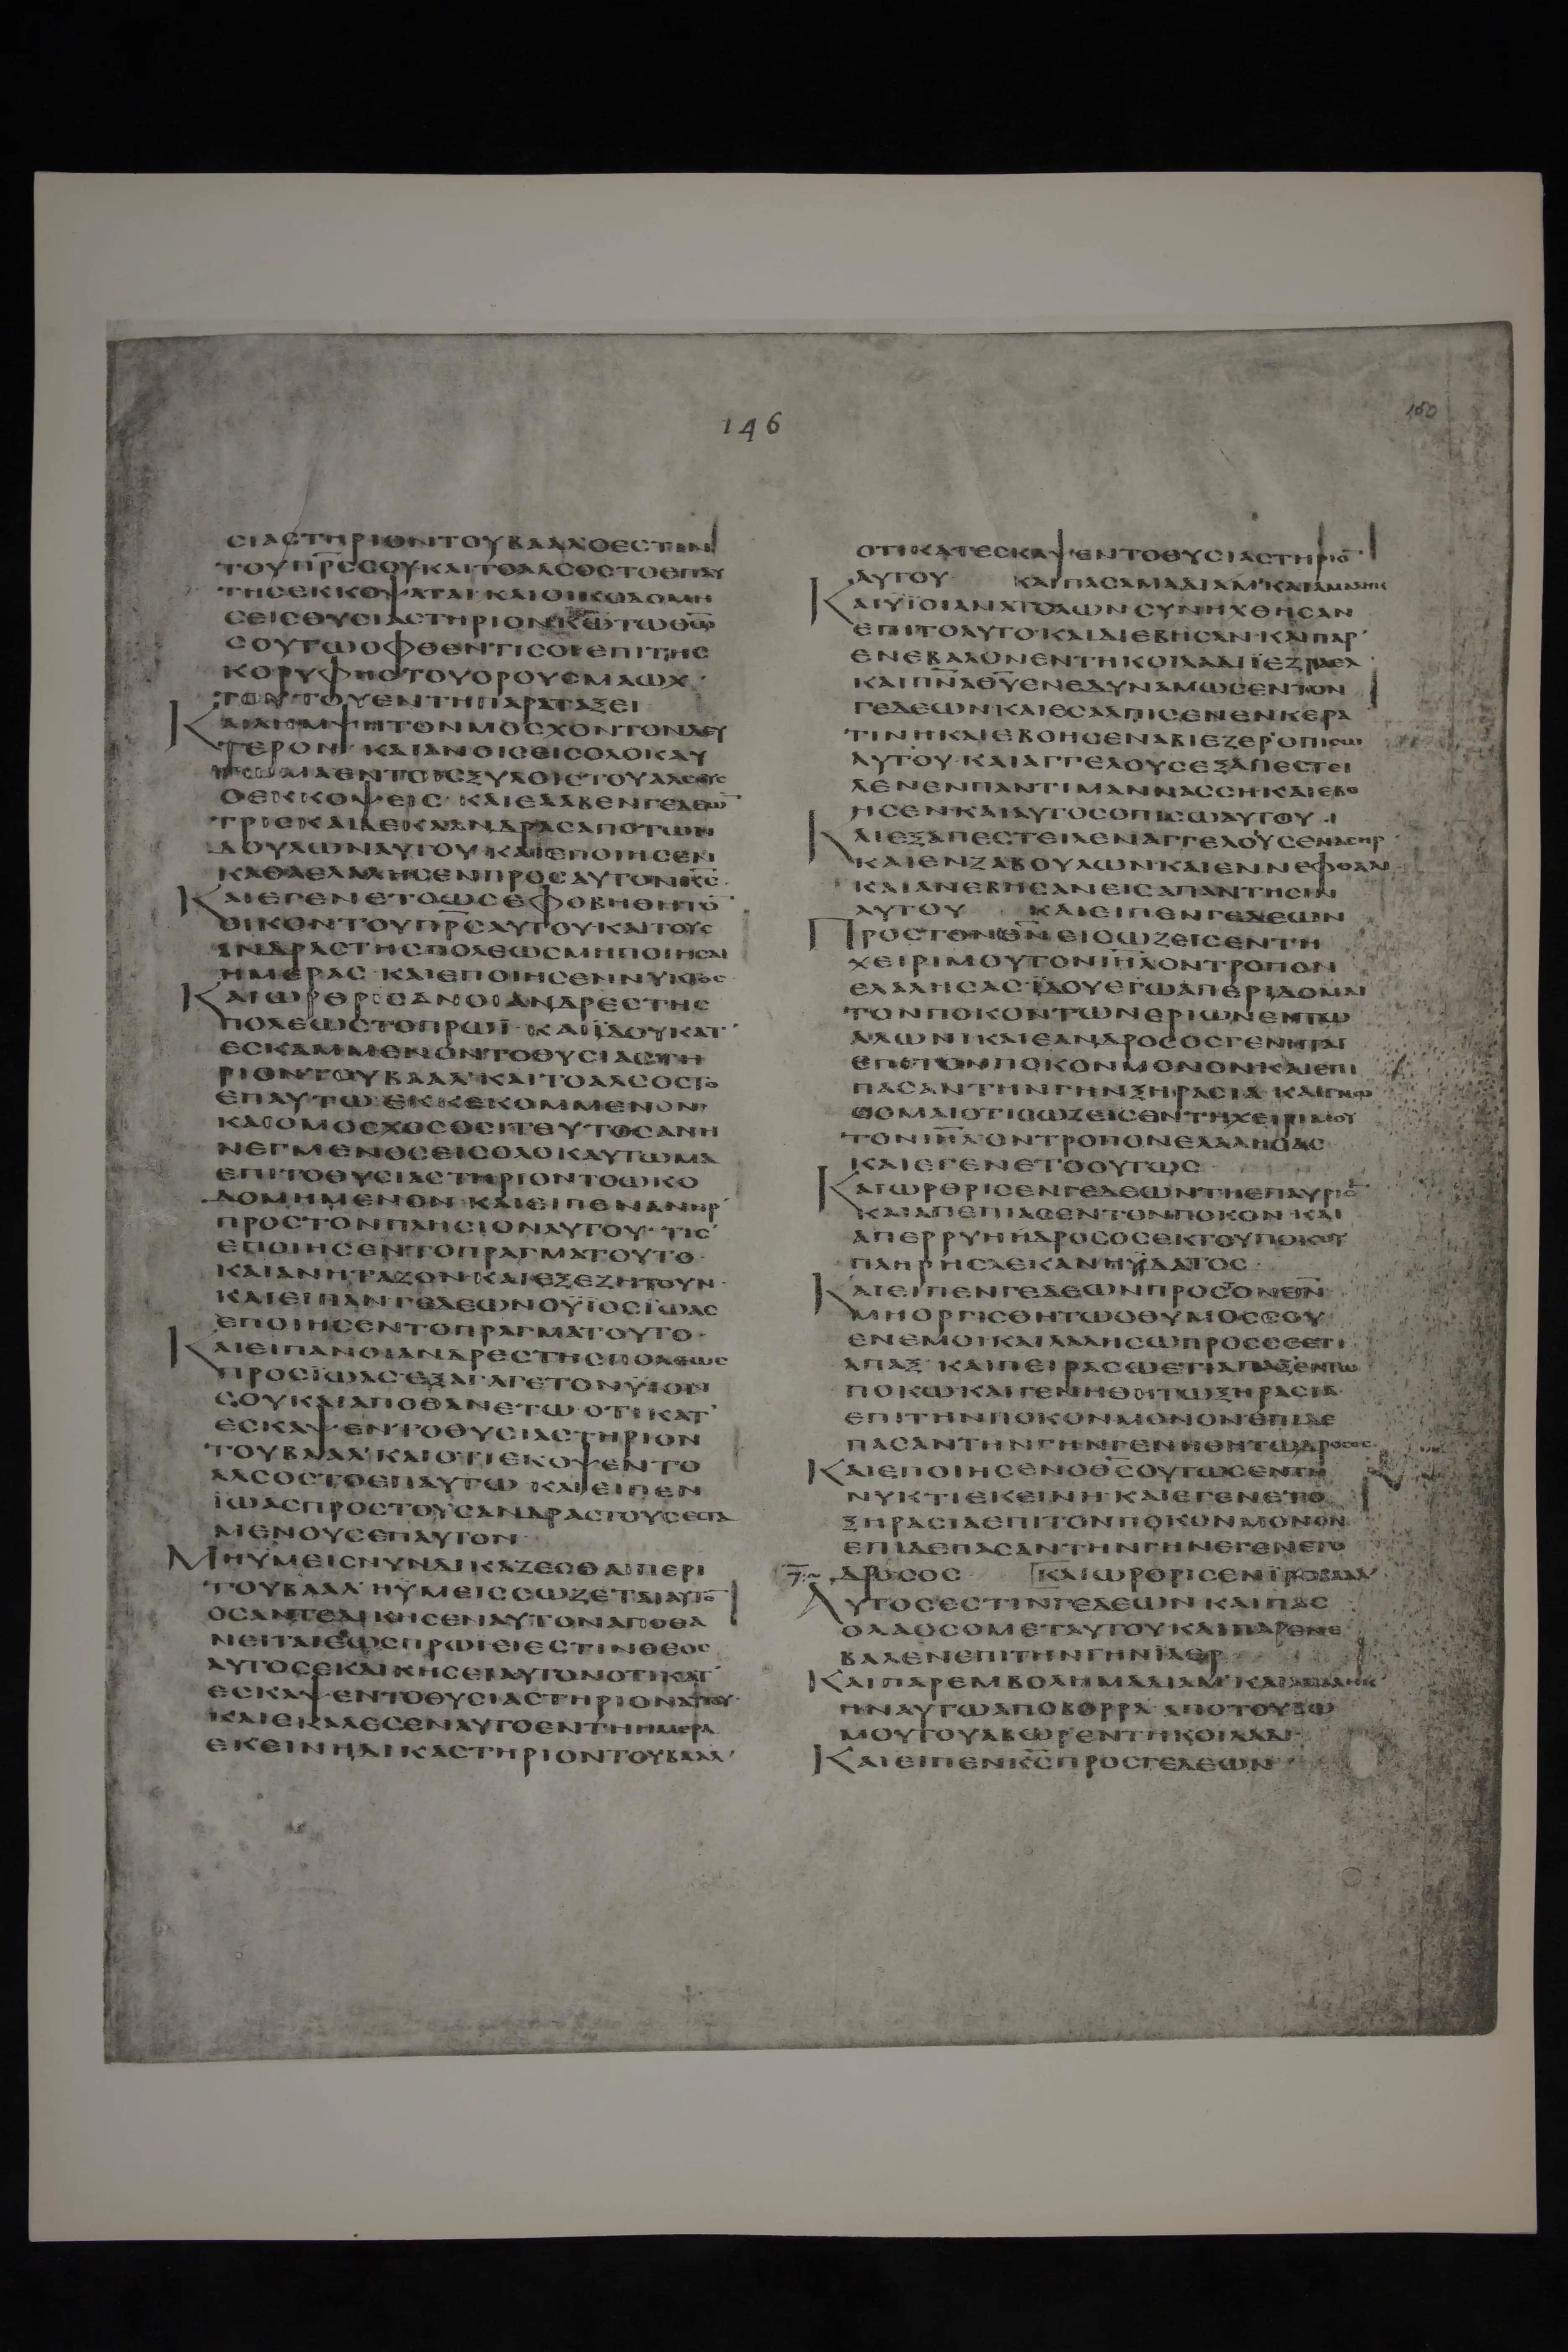 146
160
ϹΙΑϹΤΗΡΙΟΝΤΟΥΒΑΑΛΟΕϹΤΙΝ
ΤΟΥΠΡ̅Ϲ̅ϹΟΥΚΑΙΤΟΑΛϹΟϹΤΟΕΠΑΥ
ΤΗϹΕΚΚΟΨΑΤΑΙ·ΚΑΙΟΙΚΩΔΟΜΗ
ϹΕΙϹΘΥϹΙΑϹΤΗΡΙΟΝΚ̅Ω̅ΤΩΘ̅Ω̅
ϹΟΥΤΩΟΦΘΕΝΤΙϹΟΙΕΠΙΤΗϹ
ΚΟΡΥΦΗϹΤΟΥΟΡΟΥϹΜΑΩΧ·
ΤΟΥΕΝΤΗΠΑΡΑΤΑΞΕΙ
ΤΟΝΜΟϹΧΟΝΤΟΝΔΕΥ
ΤΕΡΟΝ·ΚΑΙΑΝΟΙϹΕΙϹΟΛΟΚΑΥ
ΕΝΤΟΙϹΞΥΛΟΙϹΤΟΥΑΛϹΟΥϹ
ΟΕΚΚΟΨΕΙϹ·ΚΑΙΕΛΑΒΕΝΓΕΔΕΩ̅
ΤΡΙϹΚΑΙΔΕΚΑΑΝΔΡΑϹΑΠΟΤΩΝ
ΔΟΥΛΩΝΑΥΤΟΥ·ΚΑΙΕΠΟΙΗϹΕΝ
ΚΑΘΑΕΛΑΛΗϹΕΝΠΡΟϹΑΥΤΟΝΚ̅Ϲ̅·
ΚΑΙΕΓΕΝΕΤΟΩϹΕΦΟΒΗΘΗΤΟ̅
ΟΙΚΟΝΤΟΥΠΡ̅Ϲ̅ΑΥΤΟΥΚΑΙΤΟΥϹ
ΑΝΔΡΑϹΤΗϹΠΟΛΕΩϹΜΗΠΟΙΗϹΑΙ
ΗΜΕΡΑϹ·ΚΑΙΕΠΟΙΗϹΕΝΝΥΚΤΟϹ
ΚΑΙΩΡΘΡΙϹΑΝΟΙΑΝΔΡΕϹΤΗϹ
ΠΟΛΕΩϹΤΟΠΡΩΪ·ΚΑΙΪΔΟΥΚΑΤ᾽
ΕϹΚΑΜΜΕΝΟΝΤΟΘΥϹΙΑϹΤΗ
ΡΙΟΝΤΟΥΒΑΑΛ᾽ΚΑΙΤΟΑΛϹΟϹΤΟ
ΕΠΑΥΤΩ·ΕΚΚΕΚΟΜΜΕΝΟΝ·
ΚΑΙΟΜΟϹΧΟϹΟϹΙΤΕΥΤΟϹΑΝΗ
ΝΕΓΜΕΝΟϹΕΙϹΟΛΟΚΑΥΤΩΜΑ
ΕΠΙΤΟΘΥϹΙΑϹΤΗΡΙΟΝΤΟΩΚΟ
ΔΟΜΗΜΕΝΟΝ·ΚΑΙΕΙΠΕΝΑΝΗΡ᾽
ΠΡΟϹΤΟΝΠΛΗϹΙΟΝΑΥΤΟΥ·ΤΙϹ
ΕΠΟΙΗϹΕΝΤΟΠΡΑΓΜΑΤΟΥΤΟ·
ΚΑΙΑΝΗΤΑΖΟΝΚΑΙΕΞΕΖΗΤΟΥΝ·
ΚΑΙΕΙΠΑΝΓΕΔΕΩΝΟΫΙΟϹΪΩΑϹ
ΕΠΟΙΗϹΕΝΤΟΠΡΑΓΜΑΤΟΥΤΟ·
ΚΑΙΕΙΠΑΝΟΙΑΝΔΡΕϹΤΗϹΠΟΛΕΩϹ
ΠΡΟϹΪΩΑϹ·ΕΞΑΓΑΓΕΤΟΝΫΙΟΝ
ϹΟΥΚΑΙΑΠΟΘΑΝΕΤΩ·ΟΤΙΚΑΤ᾽
ΕϹΚΑΨΕΝΤΟΘΥϹΙΑϹΤΗΡΙΟΝ
ΤΟΥΒΑΑΛ᾽ΚΑΙΟΤΙΕΚΟΨΕΝΤΟ
ΑΛϹΟϹΤΟΕΠΑΥΤΩ·ΚΑΙΕΙΠΕΝ
ΪΩΑϹΠΡΟϹΤΟΥϹΑΝΔΡΑϹΤΟΥϹΕϹΤΑ
ΜΕΝΟΥϹΕΠΑΥΤΟΝ
ΜΗΫΜΕΙϹΝΥΝΔΙΚΑΖΕϹΘΑΙΠΕΡΙ
ΤΟΥΒΑΑΛ᾽ΗΫΜΕΙϹϹΩΖΕΤΑΙΑΥΤΟ̅
ΟϹΑΝΤΕΔΙΚΗϹΕΝΑΥΤΟΝΑΠΟΘΑ
ΝΕΙΤΑΙΕΩϹΠΡΩΪΕΙΕϹΤΙΝΘΕΟϹ
ΑΥΤΟϹΕΚΔΙΚΗϹΕΙΑΥΤΟΝΟΤΙΚΑΤ᾽
ΕϹΚΑΨΕΝΤΟΘΥϹΙΑϹΤΗΡΙΟΝΑΥΤΟΥ·
ΚΑΙΕΚΑΛΕϹΕΝΑΥΤΟΕΝΤΗΗΜΕΡΑ
ΕΚΕΙΝΗΔΙΚΑϹΤΗΡΙΟΝΤΟΥΒΑΑΛ᾽
ΟΤΙΚΑΤΕϹΚΑΨΕΝΤΟΘΥϹΙΑϹΤΗΡΙΟ̅
ΑΥΤΟΥ· ΚΑΙΠΑϹΑΜΑΔΙΑΜ᾽ΚΑΙΑΜΑΛΗΚ
ΚΑΙΫΪΟΙΑΝΑΤΟΛΩΝϹΥΝΗΧΘΗϹΑΝ
ΕΠΙΤΟΑΥΤΟ·ΚΑΙΔΙΕΒΗϹΑΝ·ΚΑΙΠΑΡ᾽
ΕΝΕΒΑΛΟΝΕΝΤΗΚΟΙΛΑΔΙΪΕΖΡΑΕΛ·
ΚΑΙΠΝ̅ΑΘ̅Υ̅ΕΝΕΔΥΝΑΜΩϹΕΝΤΟΝ
ΓΕΔΕΩΝΚΑΙΕϹΑΛΠΙϹΕΝΕΝΚΕΡΑ
ΤΙΝΗΚΑΙΕΒΟΗϹΕΝΑΒΙΕΖΕΡ᾽ΟΠΙϹΩ
ΑΥΤΟΥ·ΚΑΙΑΓΓΕΛΟΥϹΕΞΑΠΕϹΤΕΙ
ΛΕΝΕΝΠΑΝΤΙΜΑΝΝΑϹϹΗΚΑΙΕΒΟ
ΗϹΕΝΚΑΙΑΥΤΟϹΟΠΙϹΩΑΥΤΟΥ·
ΚΑΙΕΞΑΠΕϹΤΕΙΛΕΝΑΓΓΕΛΟΥϹΕΝΑϹΗΡ·
ΚΑΙΕΝΖΑΒΟΥΛΩΝ·ΚΑΙΕΝΝΕΦΘΑΛΙ·
ΚΑΙΑΝΕΒΗϹΑΝΕΙϹΑΠΑΝΤΗϹΙΝ
ΑΥΤΟΥ ΚΑΙΕΙΠΕΝΓΕΔΕΩΝ
ΠΡΟϹΤΟΝΘ̅Ν̅ΕΙϹΩΖΕΙϹΕΝΤΗ
ΧΕΙΡΙΜΟΥΤΟΝΙ̅Η̅Λ̅ΟΝΤΡΟΠΟΝ
ΕΛΑΛΗϹΑϹ·ΪΔΟΥΕΓΩΑΠΕΡΙΔΟΜΑΙ
ΤΟΝΠΟΚΟΝΤΩΝΕΡΙΩΝΕΝΤΩ
ΑΛΩΝΙΚΑΙΕΑΝΔΡΟϹΟϹΓΕΝΗΤΑΙ
ΕΠΙΤΟΝΠΟΚΟΝΜΟΝΟΝΚΑΙΕΠΙ
ΠΑϹΑΝΤΗΝΓΗΝΞΗΡΑϹΙΑ·ΚΑΙΓΝΩ
ϹΟΜΑΙΟΤΙϹΩΖΕΙϹΕΝΤΗΧΕΙΡΙΜΟΥ
ΤΟΝΙ̅Η̅Λ̅ΟΝΤΡΟΠΟΝΕΛΑΛΗϹΑϹ
ΚΑΙΕΓΕΝΕΤΟΟΥΤΩϹ·
ΚΑΙΩΡΘΡΙϹΕΝΓΕΔΕΩΝΤΗΕΠΑΥΡΙΟ̅
ΚΑΙΑΠΕΠΙΑϹΕΝΤΟΝΠΟΚΟΝ·ΚΑΙ
ΑΠΕΡΡΥΗΗΔΡΟϹΟϹΕΚΤΟΥΠΟΚΟΥ
ΠΛΗΡΗϹΛΕΚΑΝΗΫΔΑΤΟϹ·
ΚΑΙΕΙΠΕΝΓΕΔΕΩΝΠΡΟϹΤΟΝΘ̅Ν̅
ΜΗΟΡΓΙϹΘΗΤΩΟΘΥΜΟϹϹΟΥ
ΕΝΕΜΟΙ·ΚΑΙΛΑΛΗϹΩΠΡΟϹϹΕΕΤΙ
ΑΠΑΞ·ΚΑΙΠΕΙΡΑϹΩΕΤΙΑΠΑΞΕΝΤΩ
ΠΟΚΩΚΑΙΓΕΝΗΘΗΤΩΞΗΡΑϹΙΑ·
ΕΠΙΤΗΝΠΟΚΟΝΜΟΝΟΝΕΠΙΔΕ
ΠΑϹΑΝΤΗΝΓΗΝΓΕΝΗΘΗΤΩΔΡΟϹΟϹ·
ΚΑΙΕΠΟΙΗϹΕΝΟΘ̅Ϲ̅ΟΥΤΩϹΕΝΤΗ
ΝΥΚΤΙΕΚΕΙΝΗ·ΚΑΙΕΓΕΝΕΤΟ
ΞΗΡΑϹΙΑΕΠΙΤΟΝΠΟΚΟΝΜΟΝΟΝ
ΕΠΙΔΕΠΑϹΑΝΤΗΝΓΗΝΕΓΕΝΕΤΟ
ΔΡΟϹΟϹ ΚΑΙΩΡΘΡΙϹΕΝΪΡΟΒΑΑΛ᾽
ΑΥΤΟϹΕϹΤΙΝΓΕΔΕΩΝΚΑΙΠΑϹ
ΟΛΑΟϹΟΜΕΤΑΥΤΟΥ·ΚΑΙΠΑΡΕΝΕ
ΒΑΛΕΝΕΠΙΤΗΝΓΗΝΪΑΕΡ
ΚΑΙΠΑΡΕΜΒΟΛΗΜΑΔΙΑΜ᾽ΚΑΙΑΜΑΛΗΚ᾽
ΗΝΑΥΤΩΑΠΟΒΟΡΡΑ·ΑΠΟΤΟΥΒΩ
ΜΟΥΤΟΥΑΒΩΡ᾽ΕΝΤΗΚΟΙΛΑΔΙ·
ΚΑΙΕΙΠΕΝΚ̅Ϲ̅ΠΡΟϹΓΕΔΕΩΝ